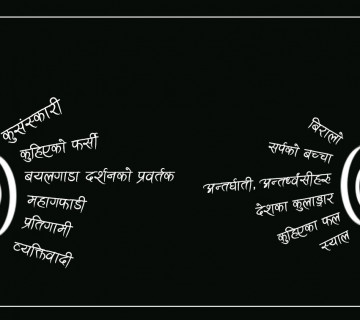 कुसंस्कारी
कुहिएको फर्सी
बयलगाडा दर्शनको प्रवर्तक
महागफाडी
प्रतिगामी
व्यक्तिवादी
बिरालो
सर्पको बच्चा
अन्तर्घाती, अन्तर्ध्वंसीहरु
देशका कुलाङ्गार
कुहिएका फल
स्याल